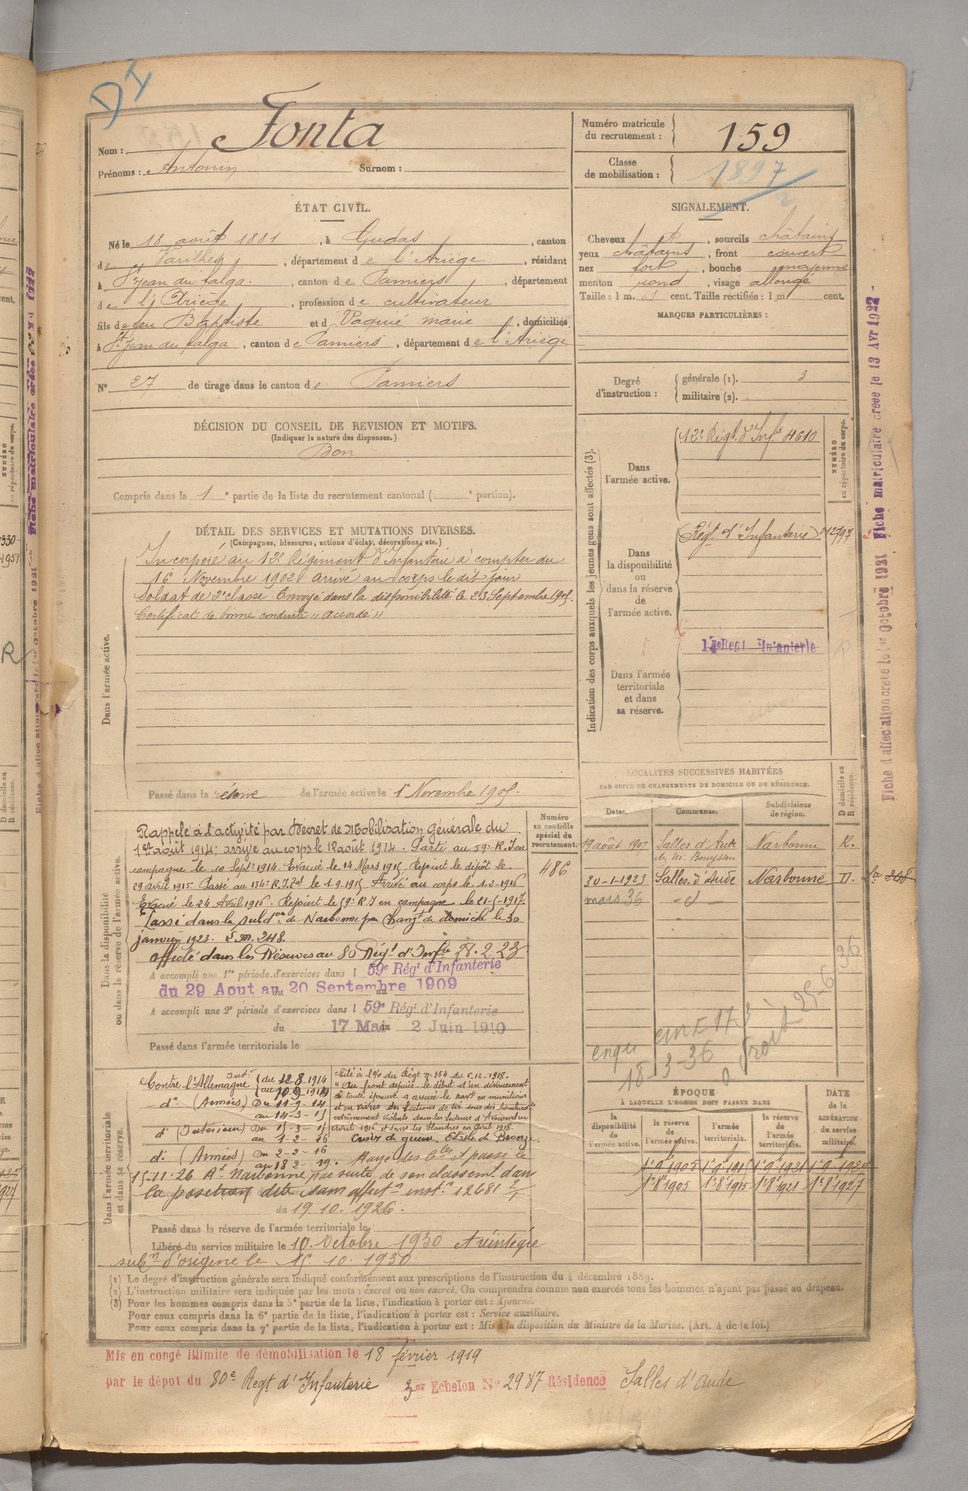 DI
Nom : Fonta
Prénoms : Antonin Surnom :
Numéro matricule du recrutement : 159
Classe de mobilisation : 1897
ÉTAT CIVIL.
Né le 18 août 1881, à Gudas, canton
de Varilhes, département de l'Ariège, résidant
à St Jean du falga, canton de Pamiers, département
de l'Ariège, profession de cultivateur
fils de feu Baptiste et d Vaquié marie, domiciliés
à St Jean du falga, canton de Pamiers, département de l'Ariège
N° 27 de tirage dans le canton de Pamiers
SIGNALEMENT.
Cheveux, sourcils châtains
yeux châtains, front couvert
nez fort, bouche moyenne
menton rond, visage allongé
Taille : 1 m. 61 cent. Taille rectifiée : 1 m. cent.
MARQUES PARTICULIÈRES :
Degré d'instruction : générale (1). 3
militaire (2).
DÉCISION DU CONSEIL DE REVISION ET MOTIFS.
(Indiquer la nature des dispenses.)
Bon
Compris dans la 1e partie de la liste du recrutement cantonal ( e portion).
DÉTAIL DES SERVICES ET MUTATIONS DIVERSES.
(Campagnes, blessures, actions d'éclat, décorations, etc.)
Dans l'armée active.
Incorporé au 12e Régiment d'Infanterie à compter du
16 Novembre 1902 arrivé au corps le dit jour
Soldat de 2e classe. Envoyé dans la disponibilité le 23 Septembre 1905.
Certificat de bonne conduite "accordé"
Passé dans la réserve de l'armée active le 1 Novembre 1905.
Indication des corps auxquels les jeunes gens sont affectés (3).
NUMÉRO au répertoire du corps.
Dans l'armée active.
12e Régt. d'Infie 4610
Dans la disponibilité ou dans la réserve de l'armée active.
Régt d'Infanterie
Dans l'armée territoriale et dans sa réserve.
Regt Infanterie
Fiche d'affectation créée le 1er Octobre 1921 Fiche matriculaire créée le 13 Avr 1927
LOCALITÉS SUCCESSIVES HABITÉES
PAR SUITE DE CHANGEMENTS DE DOMICILE OU DE RÉSIDENCE.
Dates. Communes. Subdivisions de région. D domicile ou R résidence.
19 août 1907 Salles d'Aude Narbonne R.
30-1-1923 Salles d'Aude Narbonne D.
mars 36 - d -
18-3-36
Dans la disponibilité ou dans la réserve de l'armée active.
Numéro au contrôle spécial du recrutement.
486
Rappelé à l'activité par Décret de Mobilisation générale du
1er août 1914. arrivé au corps le 12 août 1914. Parti au 59e R.I. en
campagne le 10 Septe 1914. Evacué le 14 Mars 1915. Rejoint le dépôt le
29 avril 1915. Passé au 114e R.I.Tal le 1.9.1915. Arrivé au corps le 1.2.1916
Evacué le 24 Avril 1916. Rejoint le 59e R.I en campagne le 21-5-1917.
Passé dans la subdon de Narbonne par changt de domicile le 30
janvier 1923. R.M. 248.
affecté dans les Réserves au 80 Régt d'Infie
A accompli une 1re période d'exercices dans l 59e Régt d'Infanterie
du 29 Aout au 20 Septembre 1909
A accompli une 2e période d'exercices dans l 59e Régt d'Infanterie
du 17 Mai au 2 Juin 1910
Passé dans l'armée territoriale le
Dans l'armée territoriale et dans sa réserve.
Contre l'Allemagne du 12 8 1914
au 10 9 1914
- d° (Armées) Du 11-9-14
au 14-3-15
d° (Intérieur) Du 15-3-15
au 1-2-16
d° (Armées) Du 2-2-16
au 18 2-19.
Cité à l'0 du Régt n° 354 du 5.12.1918.
Croix de guerre. Etoile de Bronze.
15.11.26 At Narbonne par suite de son classement dans
la position dite sans affectn
du 19.10.1926.
Passé dans la réserve de l'armée territoriale le
Libéré du service militaire le 10 octobre 1930
subn d'origine le 15.10.1930
ÉPOQUE
À LAQUELLE L'HOMME DOIT PASSER DANS
DATE DE LA LIBÉRATION DU SERVICE militaire.
la disponibilité de l'armée active. la réserve de l'armée active. l'armée territoriale. la réserve de l'armée territoriale.
(1) Le degré d'instruction générale sera indiqué conformément aux prescriptions de l'instruction du 4 décembre 1889.
(2) L'instruction militaire sera indiquée par les mots : exercé ou non exercé. On comprendra comme non exercés tous les hommes n'ayant pas passé au drapeau.
(3) Pour les hommes compris dans la 5e partie de la liste, l'indication à porter est : Ajourné.
Pour ceux compris dans la 6e partie de la liste, l'indication à porter est : Service auxiliaire.
Pour ceux compris dans la 7e partie de la liste, l'indication à porter est : Mis à la disposition du Ministre de la Marine. (Art. 4 de la loi.)
Mis en congé illimité de démobilisation le 18 février 1919
par le dépôt du 80e Regt d'Infanterie 3er Echelon N° 2987 Résidence Salles d'Aude